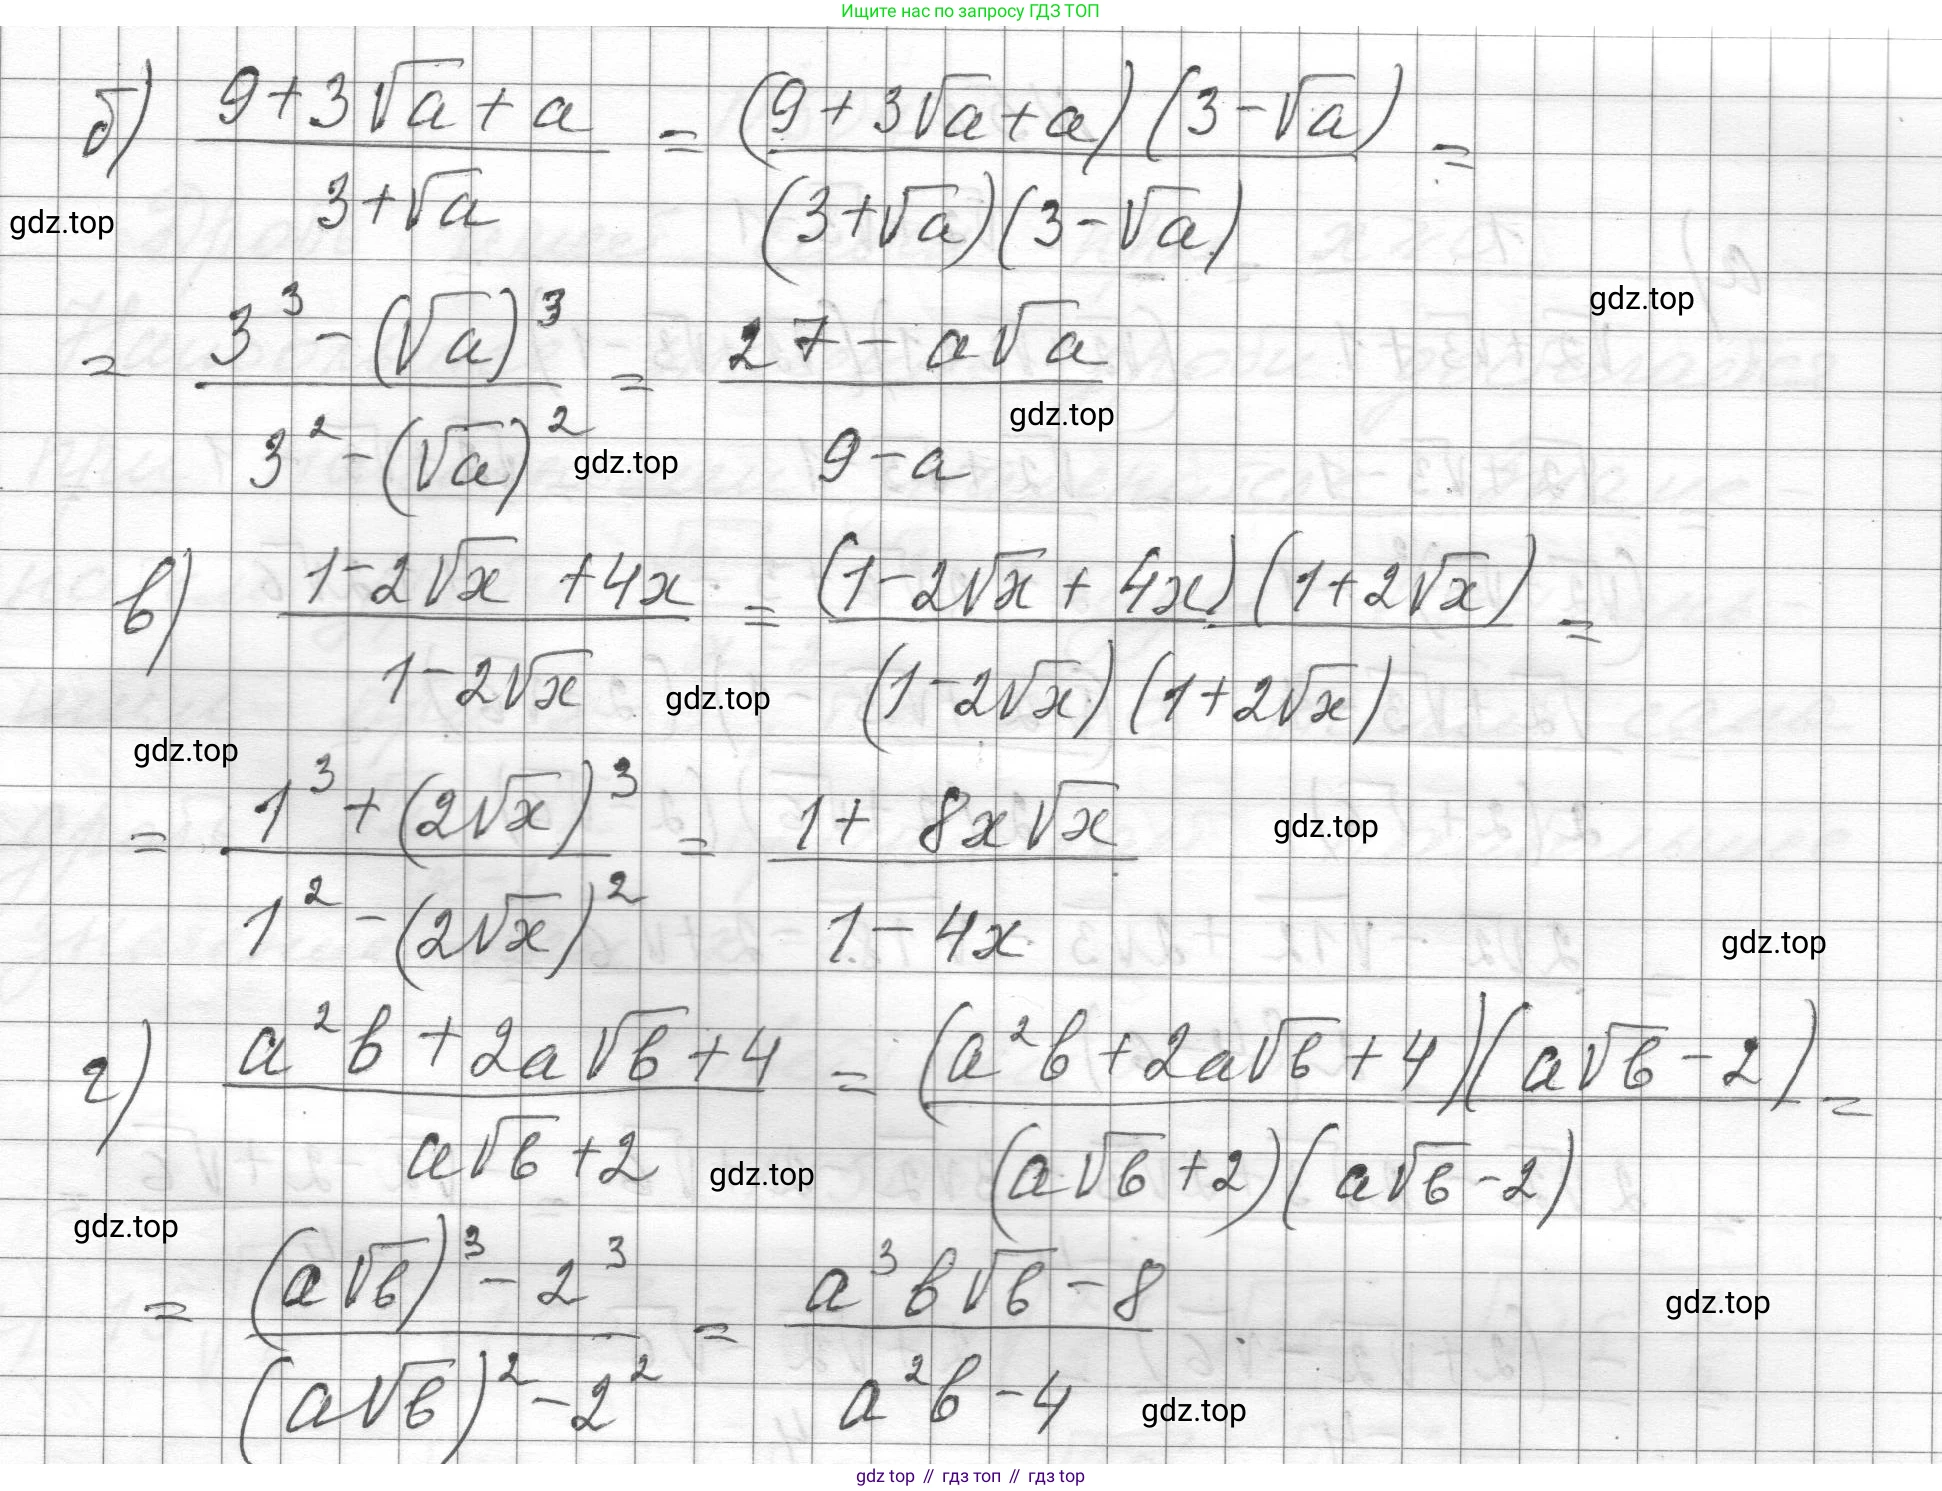 Ищите нас по запросу ГДЗ ТОП
б) (9+3√a+a)/(3+√a) = ((9+3√a+a)(3-√a))/((3+√a)(3-√a)) =
gdz.top
gdz.top
= (3³-(√a)³)/(3²-(√a)²) = (27-a√a)/(9-a)
gdz.top
gdz.top
в) (1-2√x+4x)/(1-2√x) = ((1-2√x+4x)(1+2√x))/((1-2√x)(1+2√x)) =
gdz.top
gdz.top
= (1³+(2√x)³)/(1²-(2√x)²) = (1+8x√x)/(1-4x)
gdz.top
gdz.top
г) (a²b+2a√b+4)/(a√b+2) = ((a²b+2a√b+4)(a√b-2))/((a√b+2)(a√b-2)) =
gdz.top
gdz.top
= ((a√b)³-2³)/((a√b)²-2²) = (a³b√b-8)/(a²b-4)
gdz.top
gdz.top
gdz top // гдз топ // гдз top